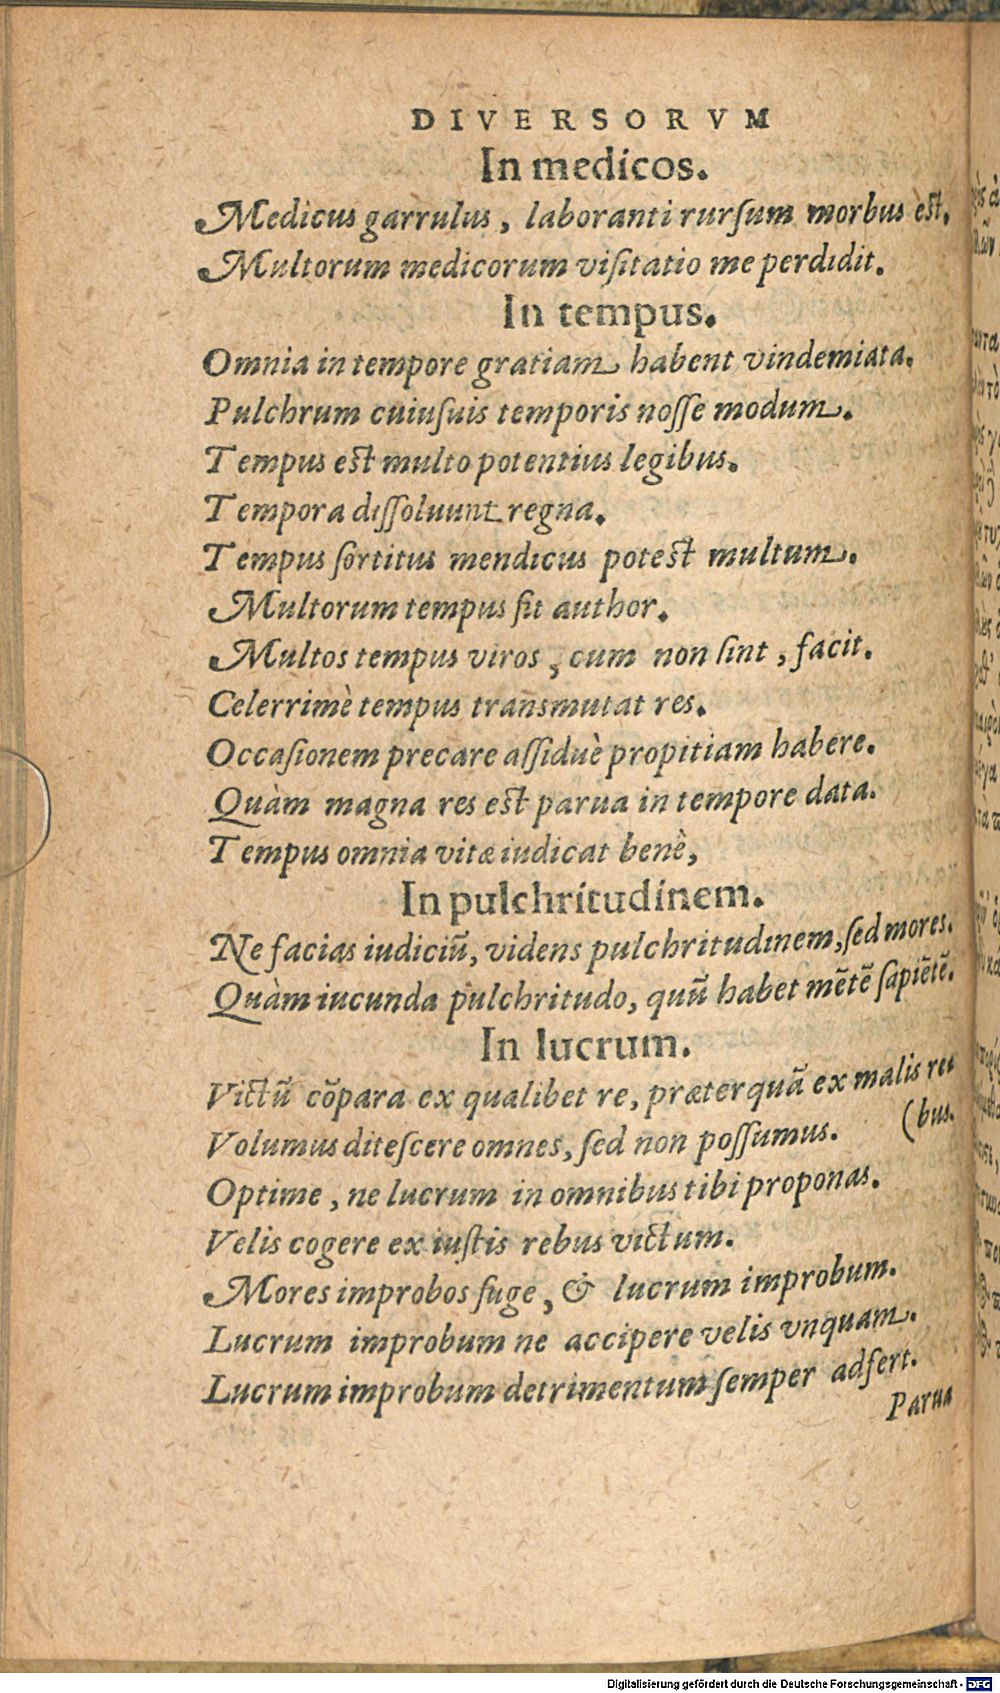 DIVERSORVM
In medicos.
Medicus garrulus, laboranti rursum morbus est.
Multorum medicorum visitatio me perdidit.
In tempus.
Omnia in tempore gratiam habent vindemiata.
Pulchrum cuiusuis temporis nosse modum.
Tempus est multo potentius legibus.
Tempora dissoluunt regna.
Tempus sortitus mendicus potest multum.
Multorum tempus fit author.
Multos tempus viros, cum non sint, facit.
Celerrimè tempus transmutat res.
Occasionem precare assiduè propitiam habere.
Quàm magna res est parua in tempore data.
Tempus omnia vitæ iudicat benè,
In pulchritudinem.
Ne facias iudiciũ, videns pulchritudinem, sed mores.
Quàm iucunda pulchritudo, quũ habet mẽtẽ sapiẽtẽ.
In lucrum.
Victũ cõpara ex qualibet re, præterquã ex malis re
(bus.
Volumus ditescere omnes, sed non possumus.
Optime, ne lucrum in omnibus tibi proponas.
Velis cogere ex iustis rebus victum.
Mores improbos fuge, & lucrum improbum.
Lucrum improbum ne accipere velis vnquam.
Lucrum improbum detrimentum semper adfert.
Parua
Digitalisierung gefördert durch die Deutsche Forschungsgemeinschaft - DFG